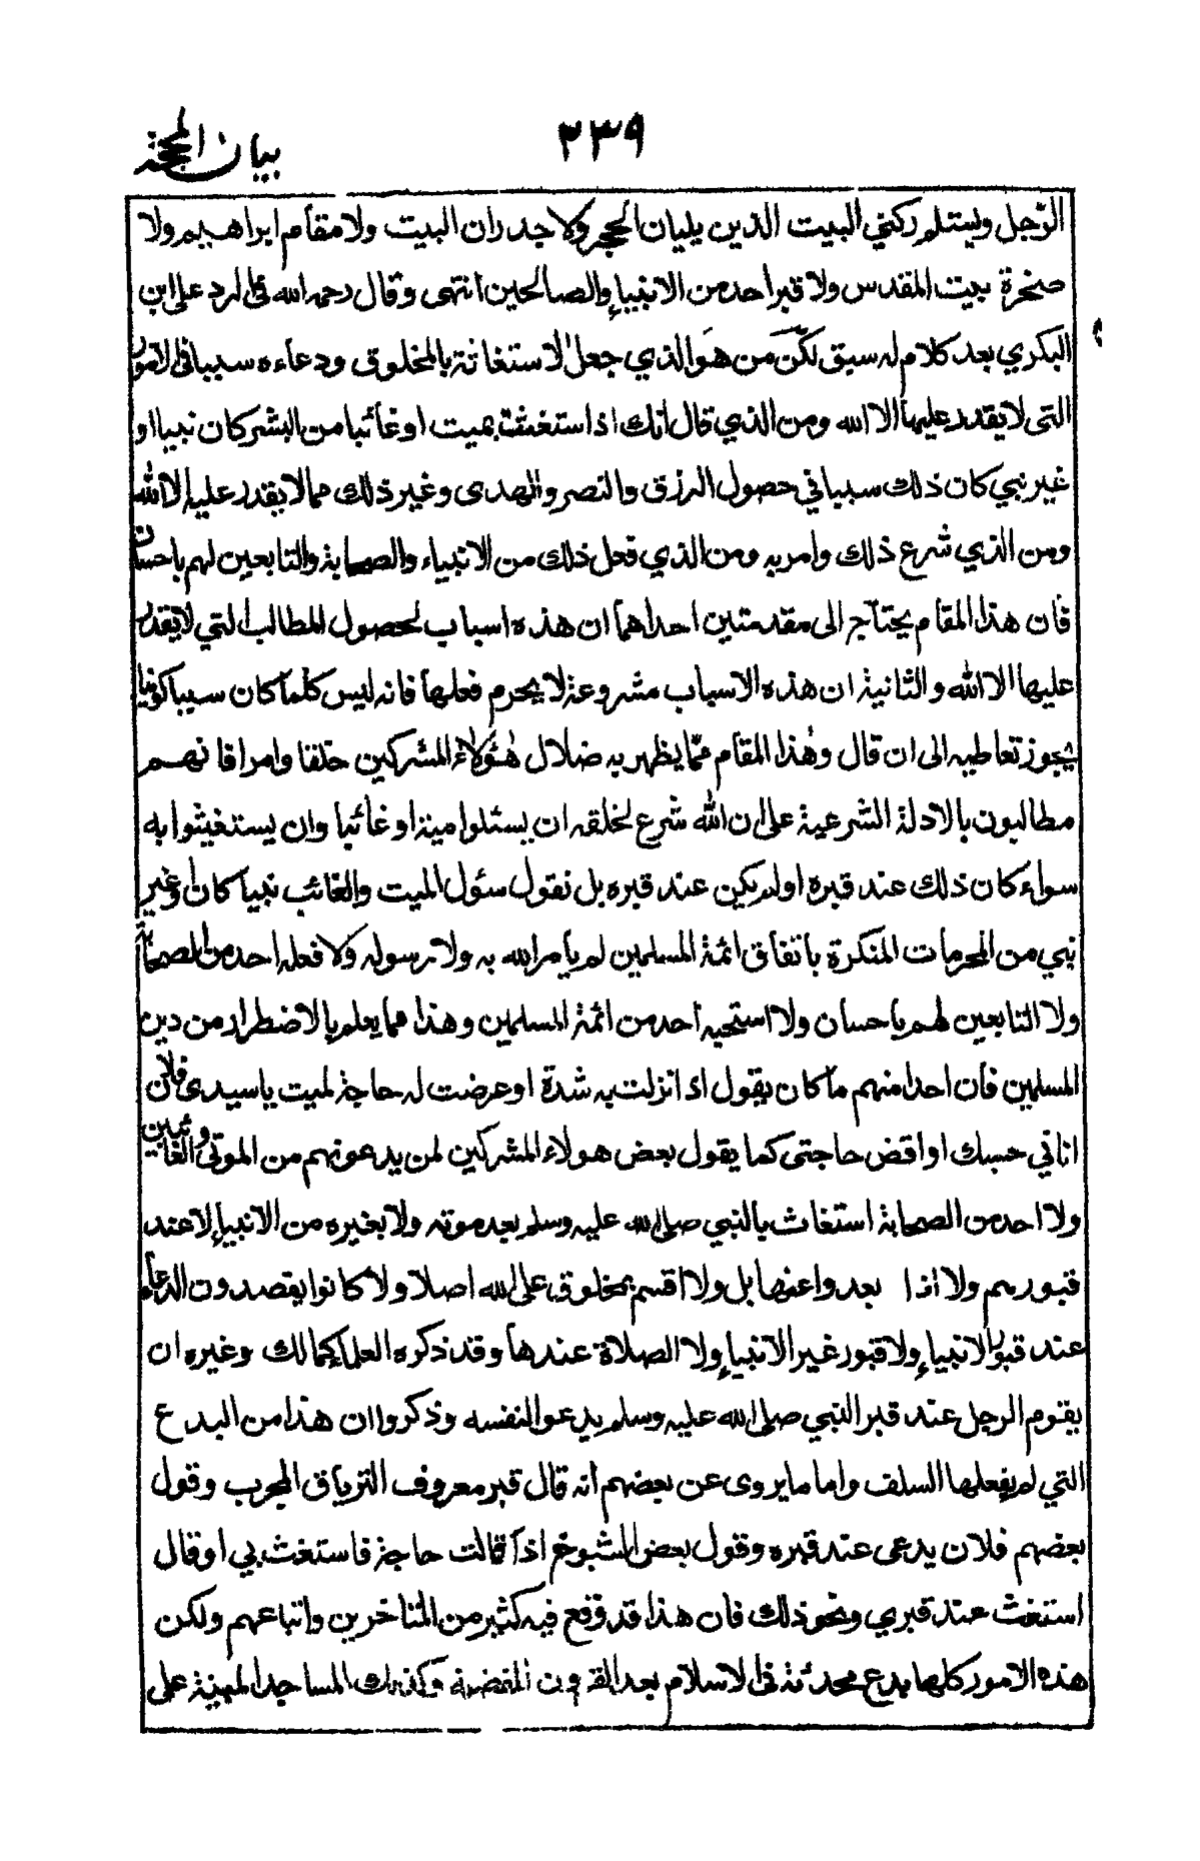 ٢٣٩
بيان المحجة
الرجل ويستلم ركني البيت الذين يليان الحجر ولا جدران البيت ولا مقام ابراهيم ولا
صخرة بيت المقدس ولا قبر احد من الانبياء والصالحين انتهى وقال رحمه الله في الرد على ابن
البكري بعد كلام له سبق لكن من هو الذي جعل الاستغاثة بالمخلوق ودعاءه سببا في الامور
التي لا يقدر عليها الا الله ومن الذي قال انك اذا استغثت بميت او غائبا من البشر كان نبيا او
غير نبي كان ذلك سببا في حصول الرزق والنصر والهدى وغير ذلك مما لا يقدر عليه الا الله
ومن الذي شرع ذلك وامر به ومن الذي فعل ذلك من الانبياء والصحابة والتابعين لهم باحسان
فان هذا المقام يحتاج الى مقدمتين احداهما ان هذه اسباب لحصول المطالب التي لا يقدر
عليها الا الله والثانية ان هذه الاسباب مشروعة لا يحرم فعلها فانه ليس كلما كان سببا كونيا
يجوز تعاطيه الى ان قال وهذا المقام مما يظهر به ضلال هؤلاء المشركين خلقا وامرا فانهم
مطالبون بالادلة الشرعية على ان الله شرع لخلقه ان يسئلوا ميتا او غائبا وان يستغيثوا به
سواء كان ذلك عند قبره او لم يكن عند قبره بل نقول سئول الميت والغائب نبيا كان او غير
نبي من المحرمات المنكرة باتفاق ائمة المسلمين لم يأمر الله به ولا رسوله ولا فعله احد من الصحابة
ولا التابعين لهم باحسان ولا استحبه احد من ائمة المسلمين وهذا مما يعلم بالاضطرار من دين
المسلمين فان احدا منهم ما كان يقول اذا نزلت به شدة او عرضت له حاجة لميت يا سيدى فلان
انا في حسبك او اقض حاجتي كما يقول بعض هولاء المشركين لمن يدعونهم من الموتى والغائبين
ولا احد من الصحابة استغاث بالنبي صلى الله عليه وسلم بعد موته ولا بغيره من الانبياء لا عند
قبورهم ولا اذا بعدوا عنها بل ولا اقسم بمخلوق على الله اصلا ولا كانوا يقصدون الدعاء
عند قبور الانبياء ولا قبور غير الانبياء ولا الصلاة عندها وقد ذكره العلماء كمالك وغيره ان
يقوم الرجل عند قبر النبي صلى الله عليه وسلم يدعو النفسه وذكروا ان هذا من البدع
التي لم يفعلها السلف واما ما يروى عن بعضهم انه قال قبر معروف الترياق المجرب وقول
بعضهم فلان يدعى عند قبره وقول بعض الشيوخ اذا كانت حاجة فاستغث بي او قال
استغث عند قبري ونحو ذلك فان هذا قد وقع فيه كثير من المتاخرين واتباعهم ولكن
هذه الامور كلها بدع محدثة في الاسلام بعد القرون المفضلة وكذلك المساجد المبنية على